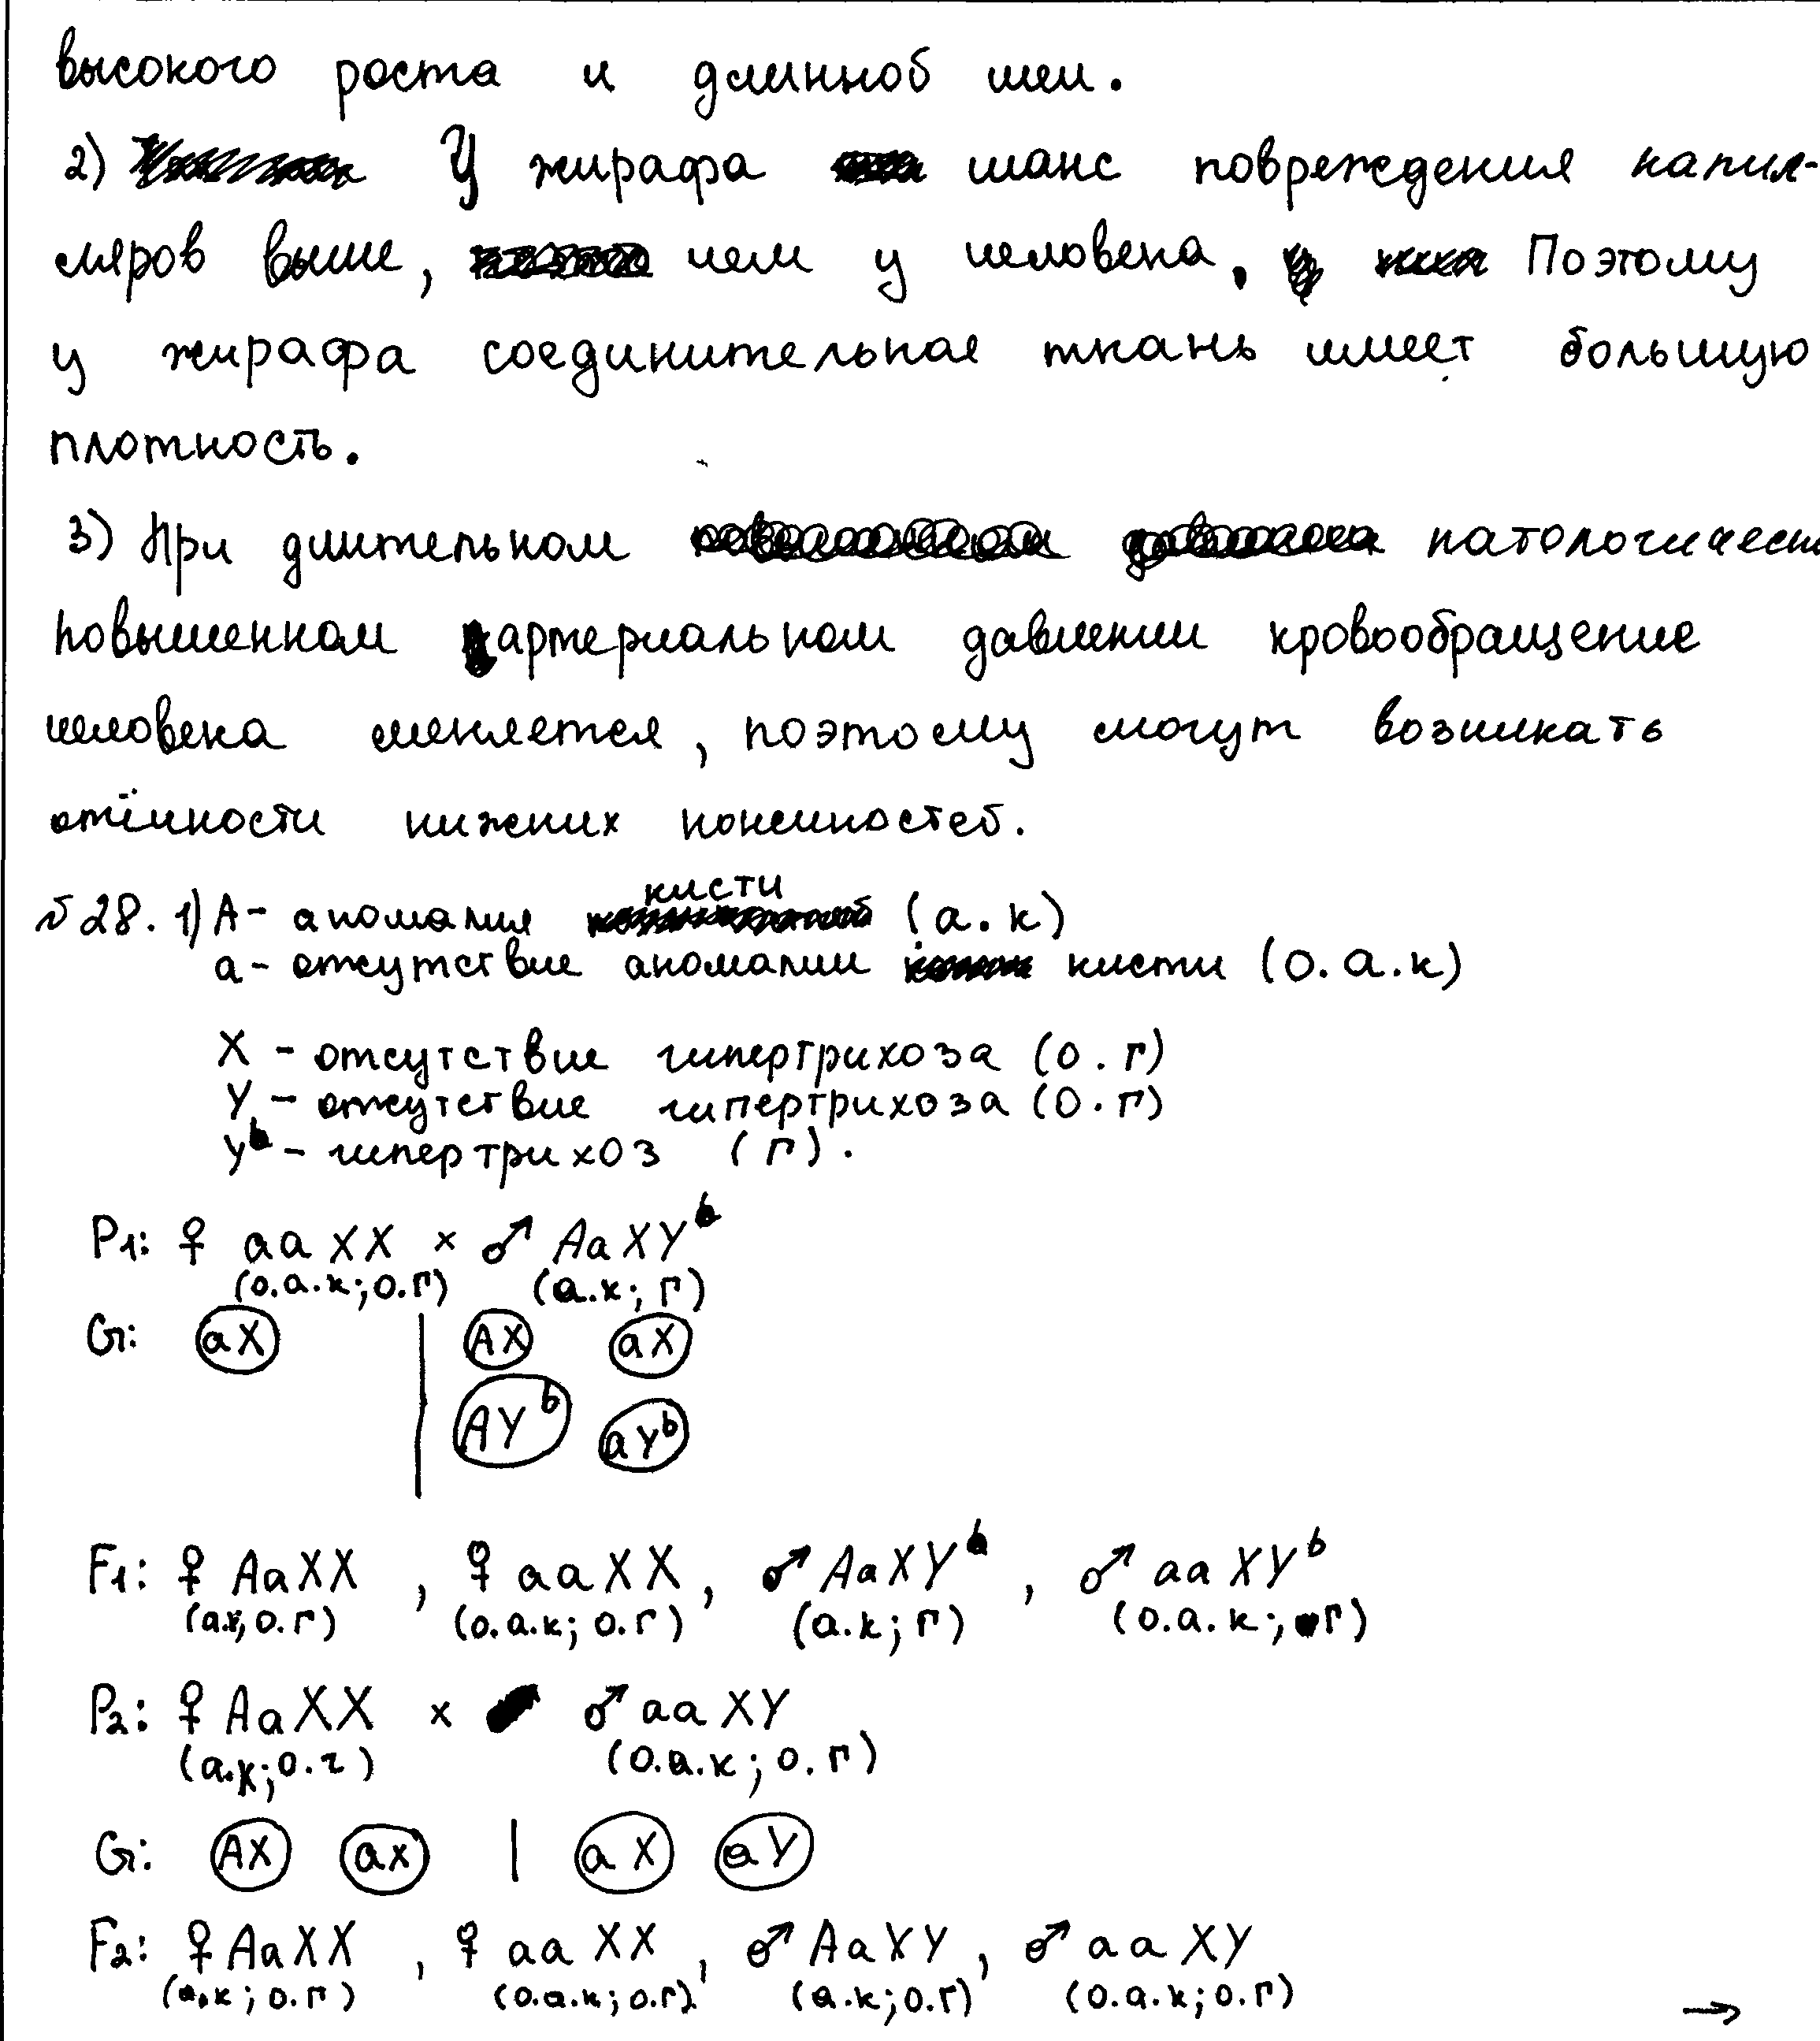 высокого роста и длинной шеи.
2) У жирафа шанс повреждения капил-
ляров выше, чем у человека. Поэтому
у жирафа соединительная ткань имеет большую
плотность.
3) При длительном патологическ
повышенном артериальном давлении кровообращение
человека меняется, поэтому могут возникать
отёчности нижних конечностей.
№28. 1) А - аномалия кисти (а.к)
а - отсутствие аномалии кисти (о.а.к)
X - отсутствие гипертрихоза (о.г)
Y - отсутствие гипертрихоза (о.г)
Y^b - гипертрихоз (г).
P1: ♀ aa XX × ♂ Aa XY^b
(о.а.к; о.г) (а.к; г)
G: aX | AX aX
AY^b aY^b
F1: ♀ AaXX , ♀ aa XX, ♂ AaXY^b , ♂ aa XY^b
(а.к; о.г) (о.а.к; о.г) (а.к; г) (о.а.к; г)
P2: ♀ AaXX × ♂ aa XY
(а.к; о.г) (о.а.к; о.г)
G: AX aX | aX aY
F2: ♀ AaXX , ♀ aa XX, ♂ AaXY, ♂ aa XY
(а.к; о.г) (о.а.к; о.г) (а.к; о.г) (о.а.к; о.г)
→